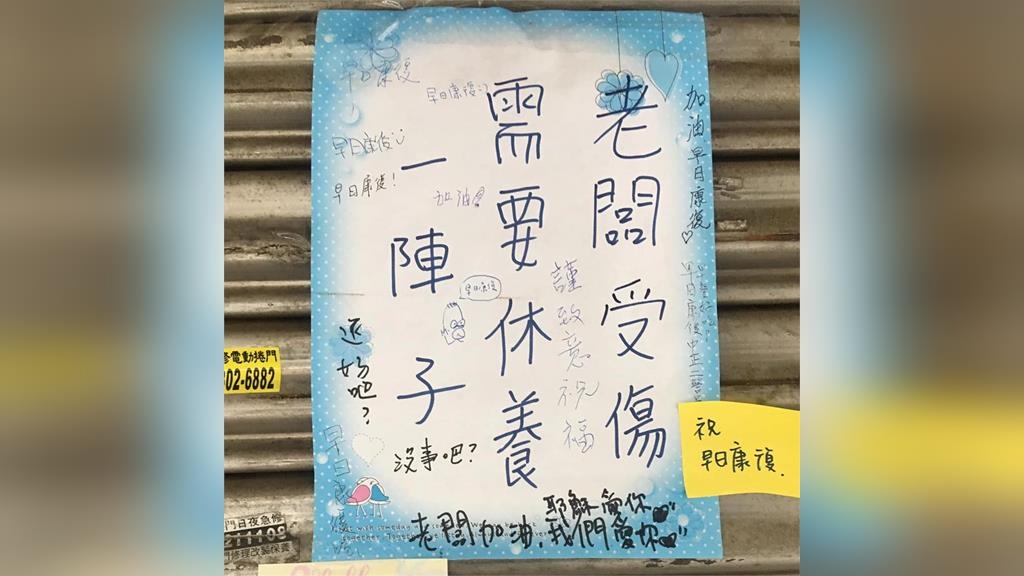 老闆受傷
需要休養
一陣子
加油 早日康復♡
早日康復
早日康復:)
早日康復
早日康復!
加油
早日康復
謹致意祝福
還好吧?
沒事吧?
早日康復
耶穌
老闆加油,我們愛你
祝
早日康復.
修電動捲門
02-6882
門日夜急修
門修理改裝保養